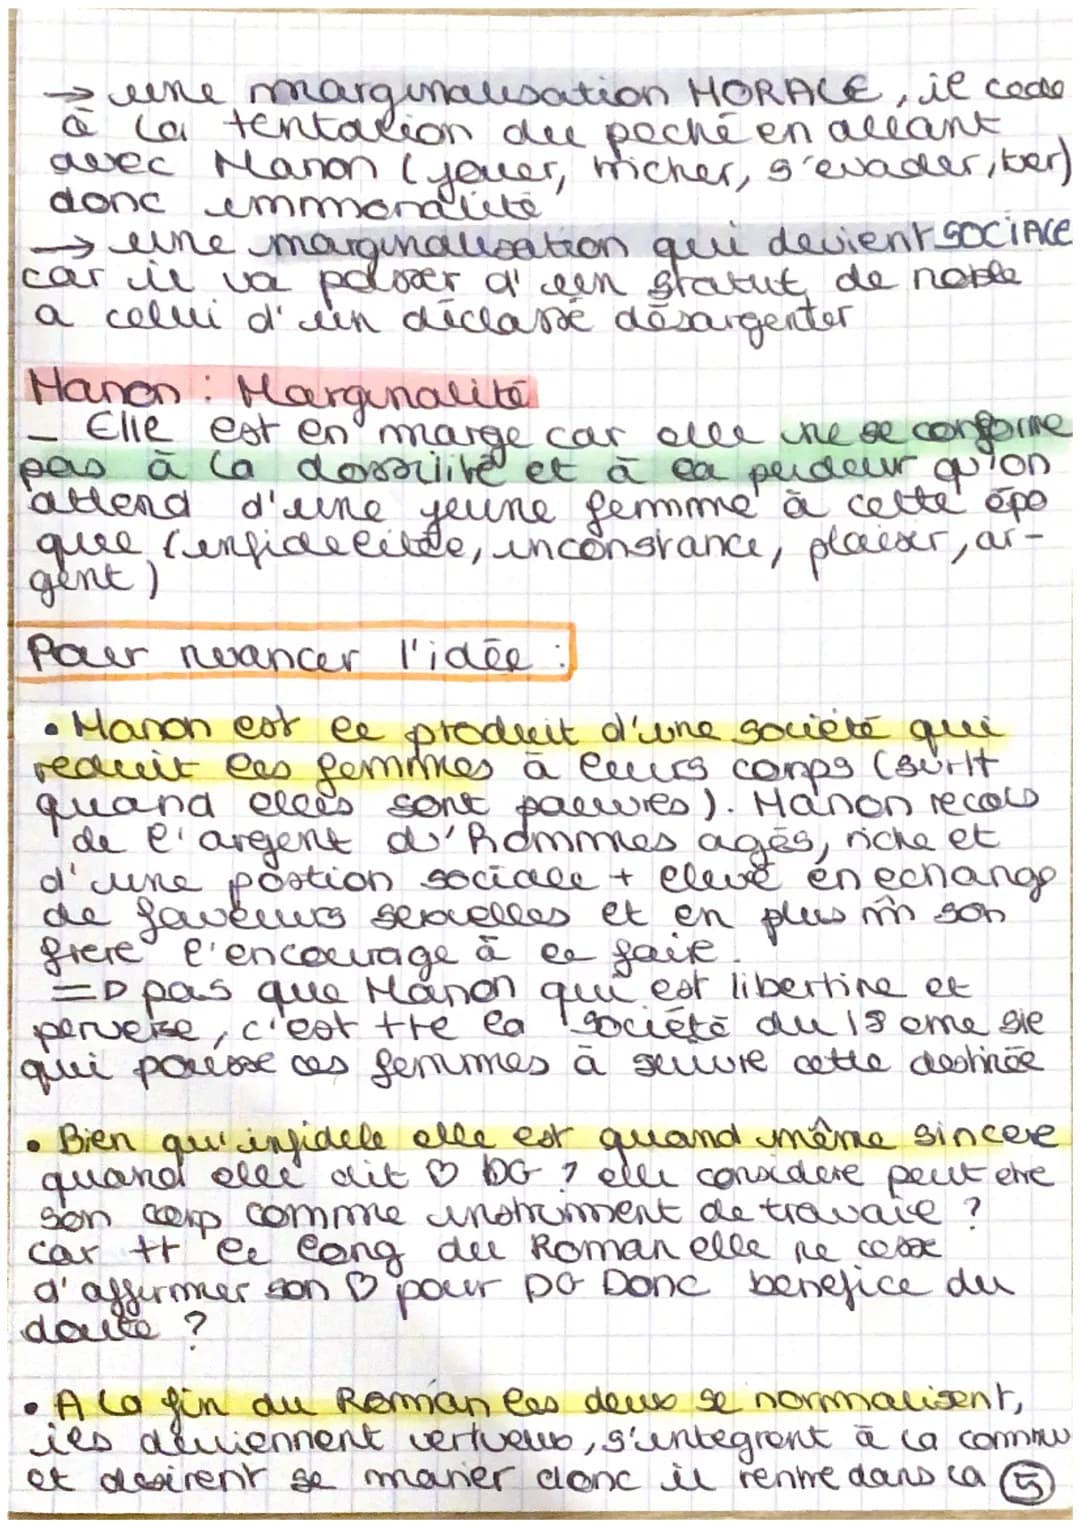 → une marginalisation MORALE, il cede
à la tentation du peché en allant
avec Manon (jouer, tricher, s'evader, tuer)
donc immoralité
→ une marginalisation qui devient SOCIALE
car il va passer d'un statut de noble
a celui d'un déclassé désargenter
Manon : Marginalité
- Elle est en marge car elle ne se conforme
pas à la dossilité et à la pudeur qu'on
attend d'une jeune femme à cette épo
que (infidelitée, inconstance, plaisir, ar-
gent)
Pour nuancer l'idée :
• Manon est le produit d'une société qui
reduit les femmes à leurs corps (surtt
quand elles sont pauvres). Manon recois
de l'argent d'hommes agés, riche et
d'une postion sociale + elevé en echange
de faveurs sexuelles et en plus m̂ son
frere l'encourage à le faire.
=D pas que Manon qui est libertine et
perverse, c'est tte la société du 18 eme sie
qui pousse ces femmes à suivre cette destinée
• Bien qu'infidele elle est quand même sincere
quand elle dit ♡ DG ? elle considere peut etre
son corp comme instrument de travail ?
car tt le long du Roman elle ne cesse
d'affirmer son ♡ pour DG Donc benefice du
doute ?
• A la fin du Roman les deux se normalisent,
ils deviennent vertueux, s'integrent à la commu
et desirent se marier donc il rentre dans la 5